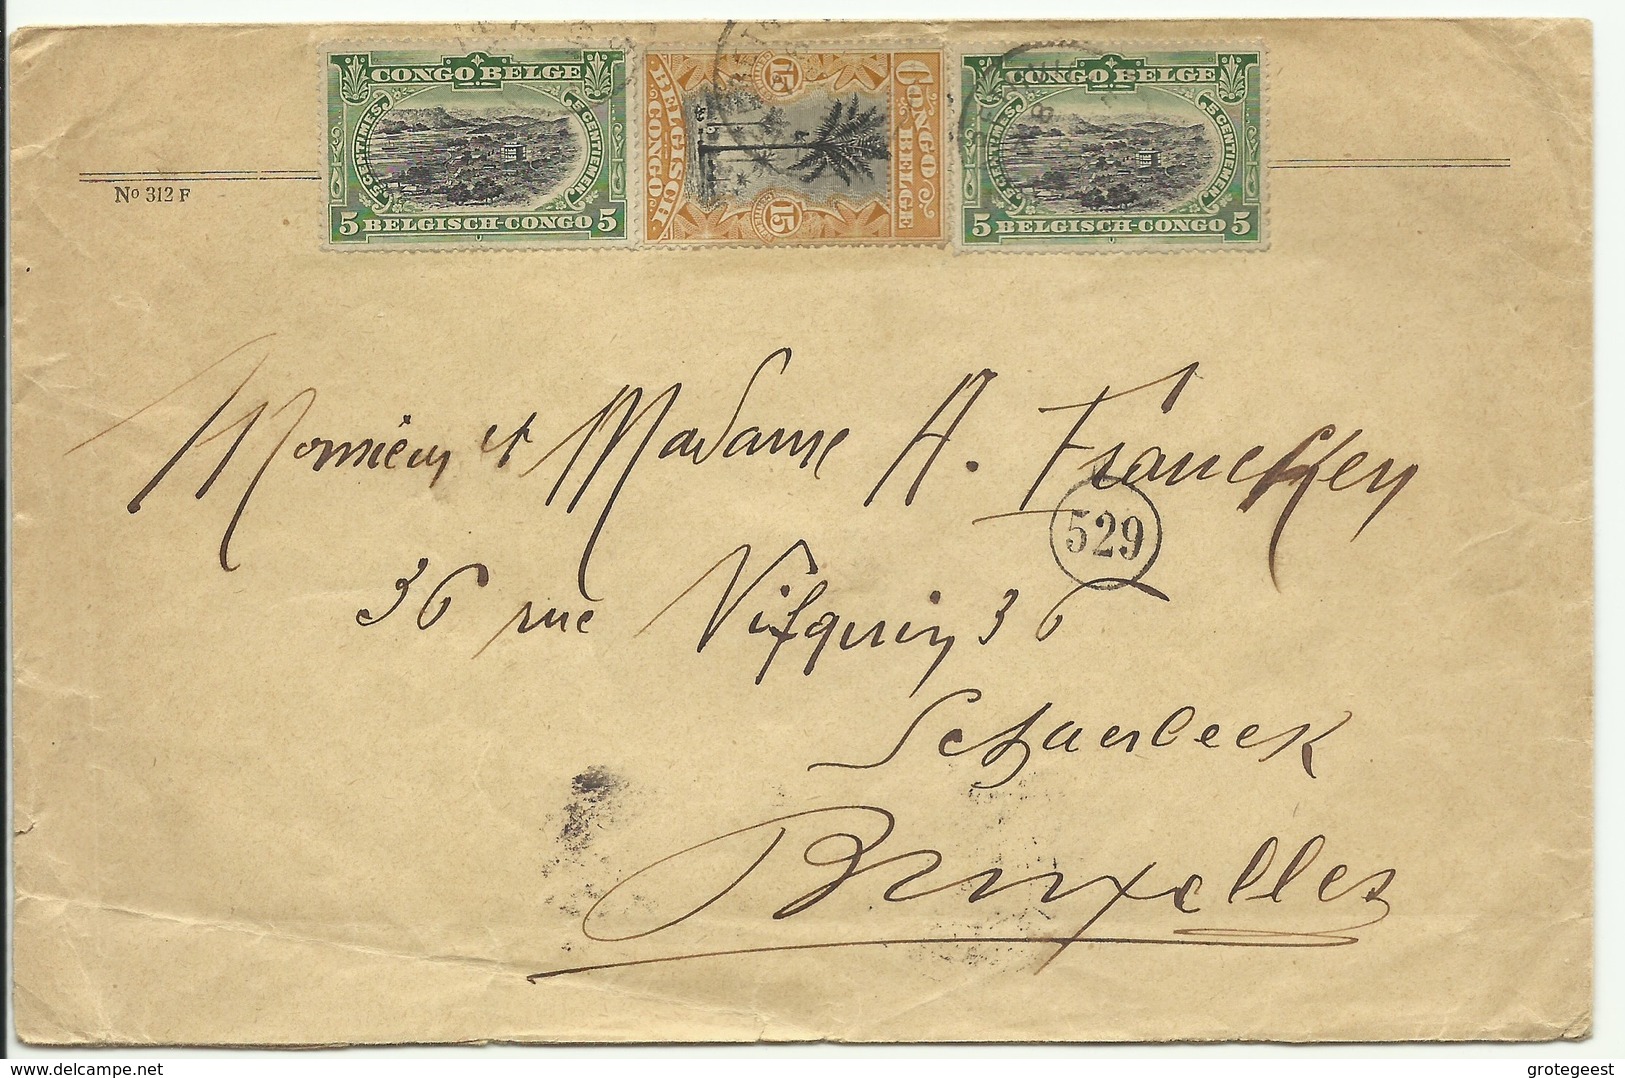 CONGO BELGE
5 CENTIMES
5 CENTIEMEN
5 BELGISCH-CONGO 5
CONGO BELGE
15
15
BELGISCH CONGO
CONGO BELGE
5 CENTIMES
5 CENTIEMEN
5 BELGISCH-CONGO 5
No 312 F
Monsieur et Madame A. Franckey
529
36 rue Vifquin 36
Schaerbeek
Bruxelles
www.delcampe.net
grotegeest